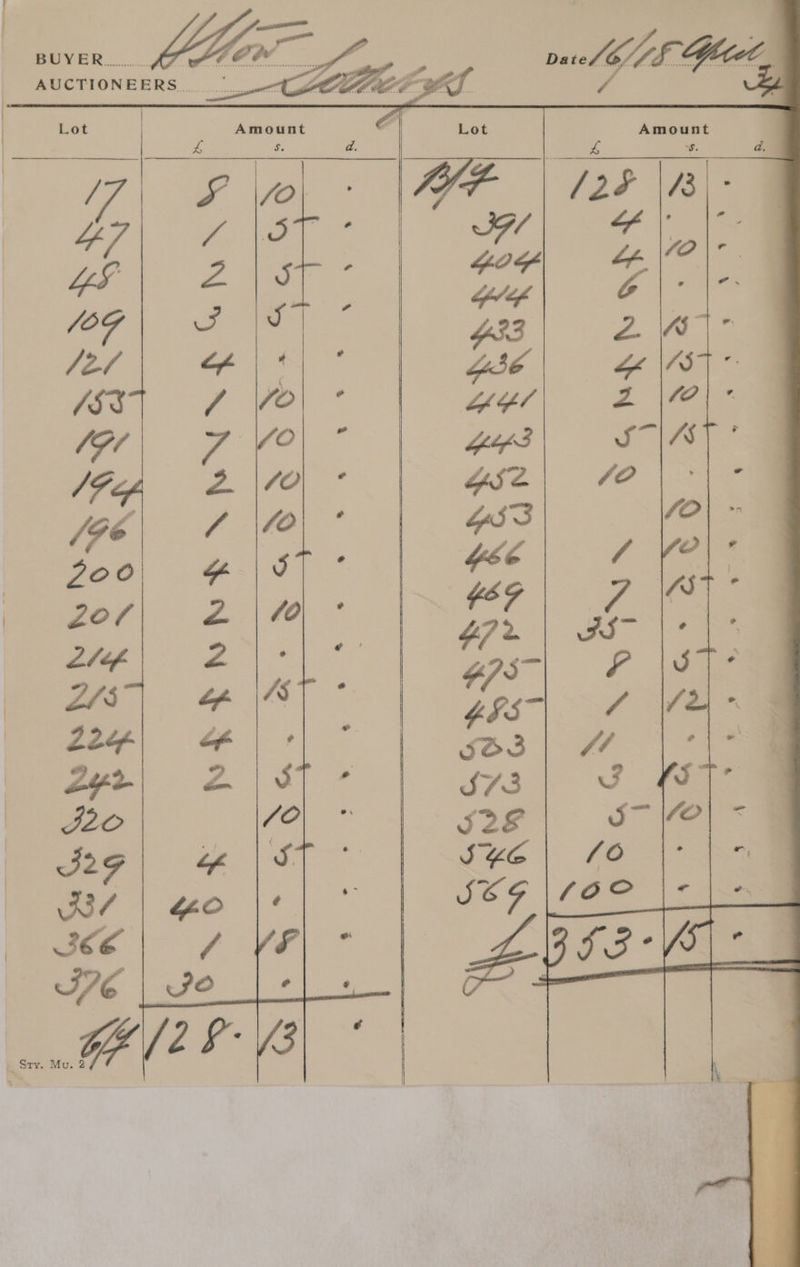 BUYER
Date 16/18 April
AUCTIONEERS Sotheby's
Lot Amount Lot Amount
£ s. d. £ s. d.
17 8 10 - B/F 128 13 -
47 1 5 - 391 4 - -
48 2 5 - 404 4 10 -
109 3 5 - 414 6 - -
121 4 - - 433 2 15 -
153 1 10 - 436 4 15 -
191 7 10 - 441 2 10 -
194 2 10 - 443 5 15 -
196 1 10 - 452 10 - -
200 4 5 - 453 10 -
201 2 10 - 466 1 10 -
214 2 - - 469 7 15 -
215 4 15 - 472 35 - -
224 4 - - 475 8 5 -
242 2 5 - 485 1 12 -
320 10 - 503 11 - -
329 4 5 - 513 3 15 -
331 40 - - 528 5 10 -
366 1 18 - 546 10 - -
376 30 - - 569 100 - -
C/F 128 - 13 - £ 353 - 15 -
Sty. Mu. 2